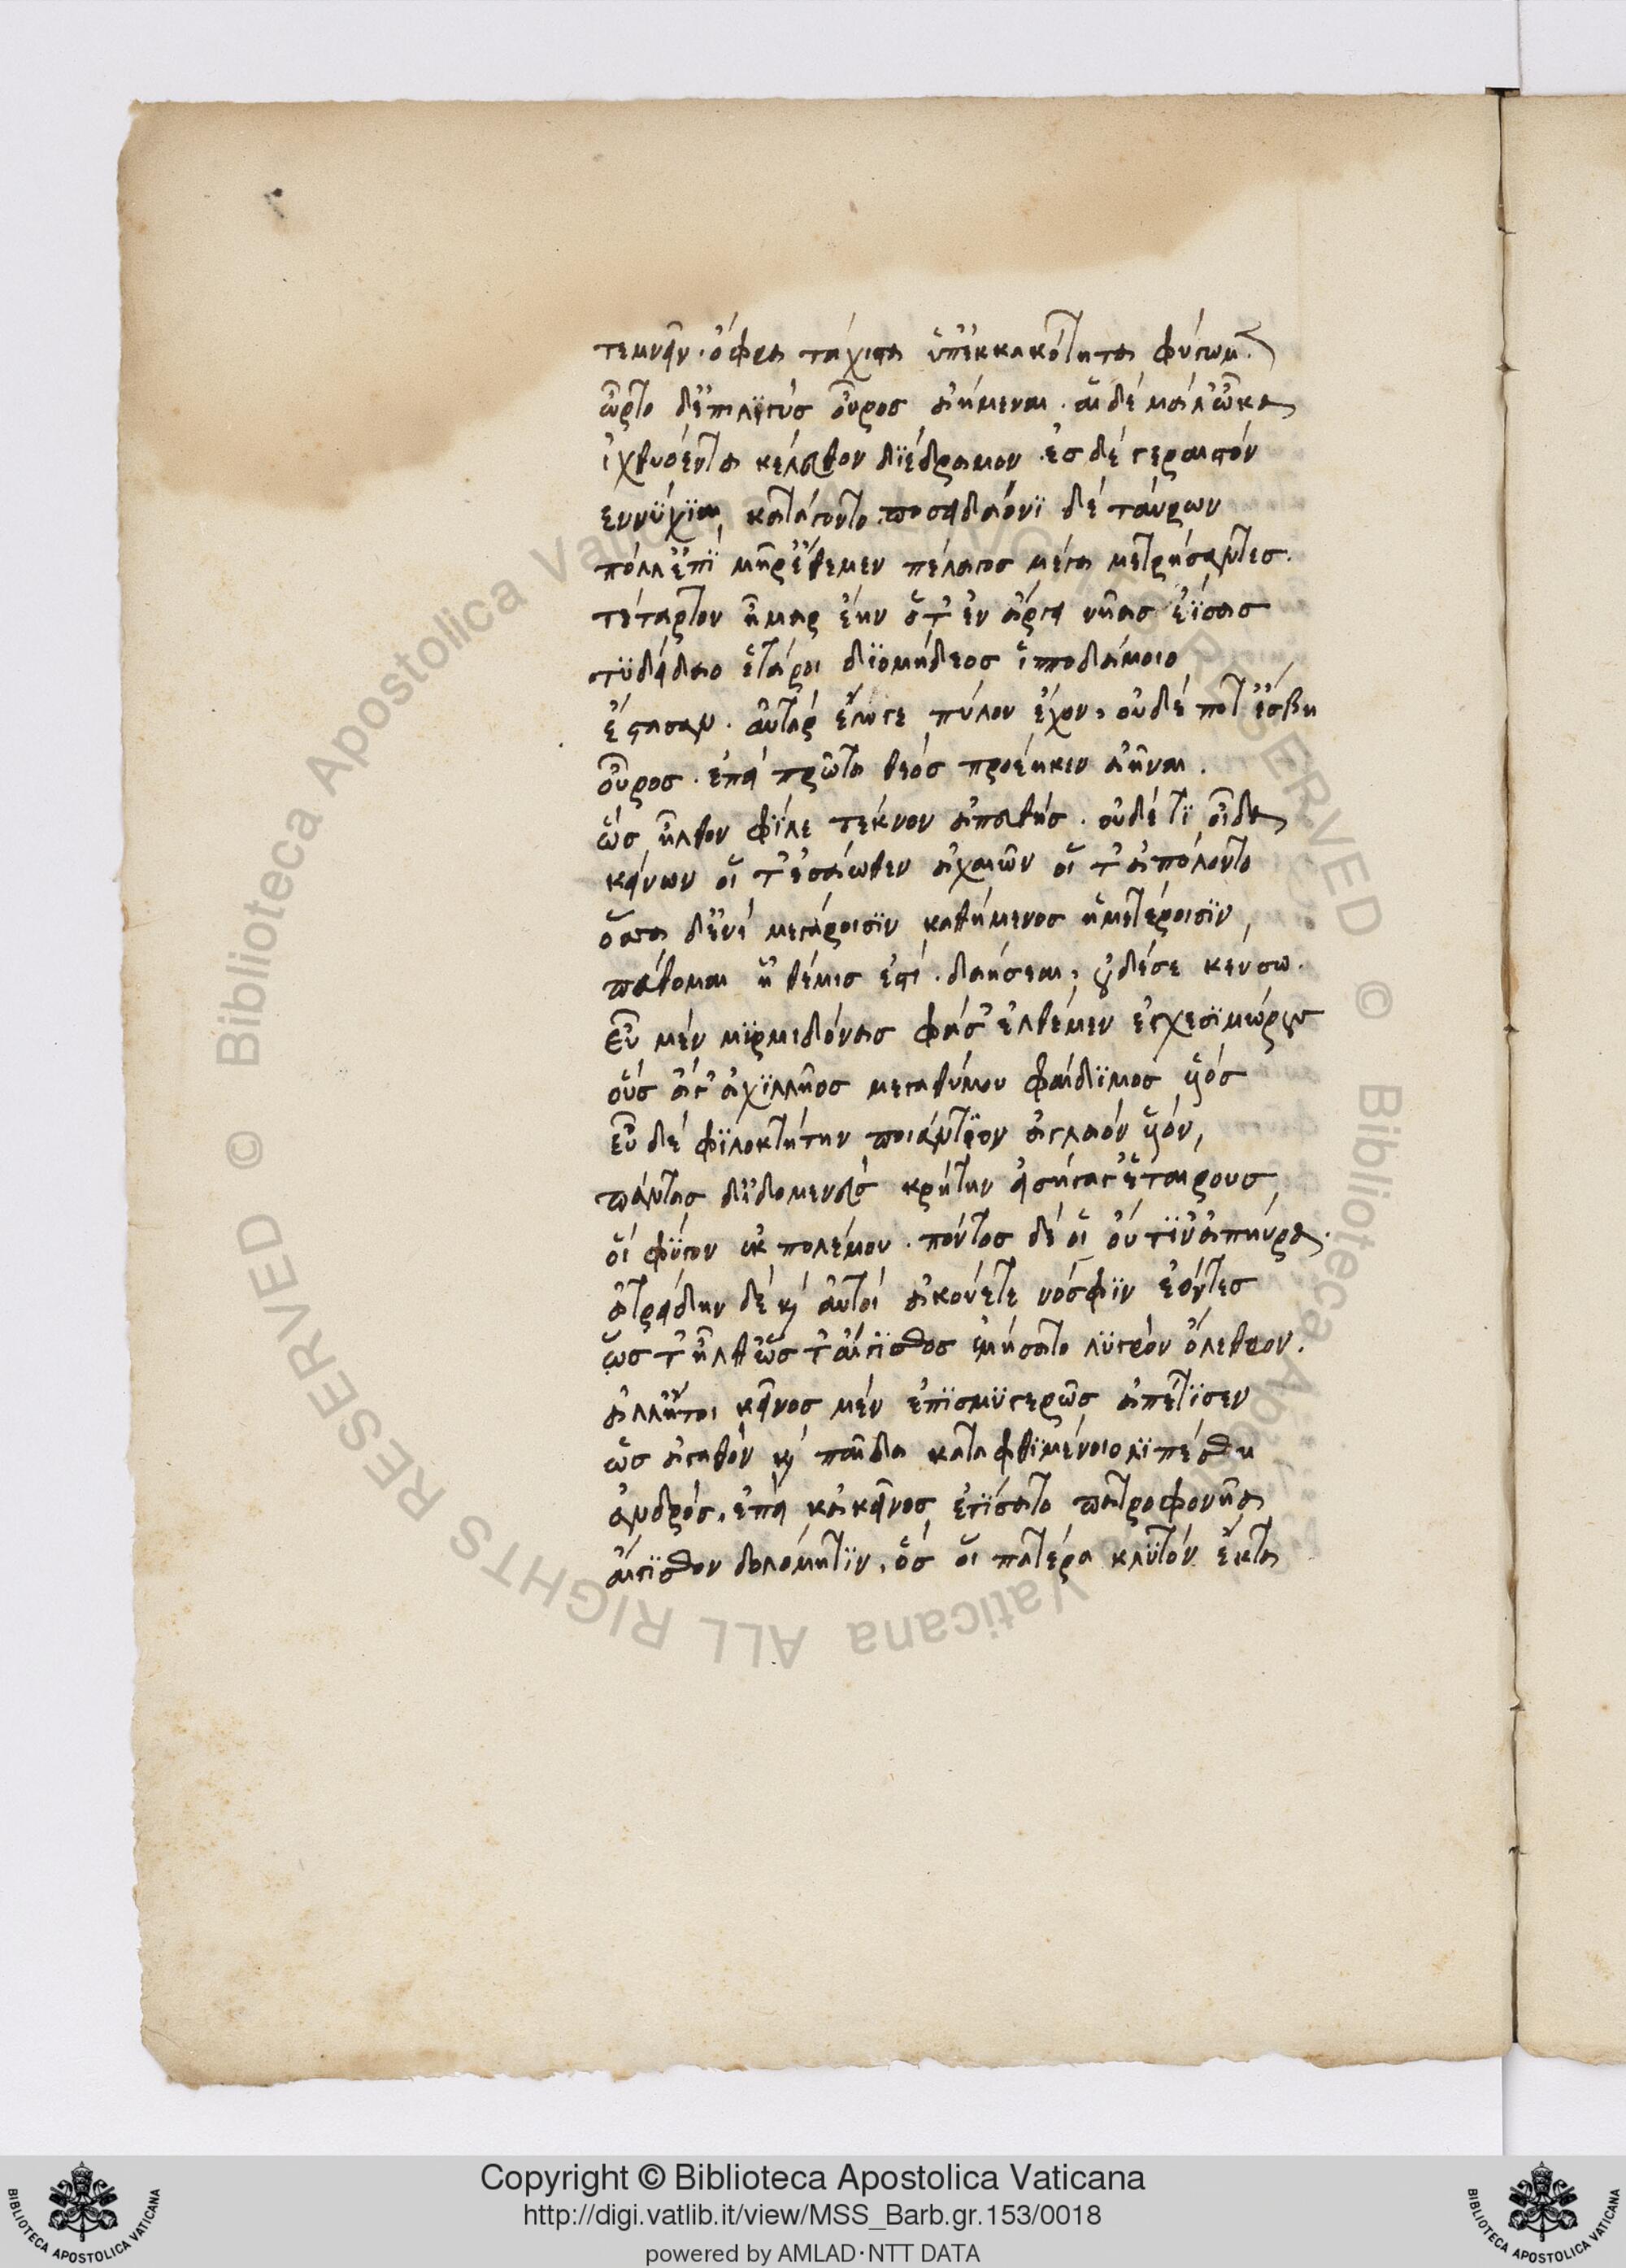 τεμνεῖν· ὄφρα τάχιστα ὑπ' ἐκ κακότητα φύγωμεν
ὦρτο δ' ἐπι λϊγὺς οὖρος ἀήμεναι. αἱ δὲ μάλ' ὦκα
ἰχθυόεντα κέλευθον διέδραμον. ἐς δὲ γεραιστὸν
ἐννΰχϊαι κατάγοντο. ποσειδάωνϊ δὲ ταύρων
πόλλ' ἐπϊ μῆρ' ἔθεμεν πέλαγος μέγα μετρήσαντες.
τέταρτον ἦμαρ ἔην ὅτ' ἐν ἄργει νῆας ἐΐσας
τϋδείδαο ἕταροι δϊομήδεος ἱπποδάμοιο
ἔστασαν. αὐτὰρ ἔγωγε πύλον ἔχον, οὐδέ ποτ' ἔσβη
οὖρος. ἐπεὶ πρῶτα θεὸς προέηκεν ἀῆναι.
ὣς ἦλθον φΐλε τέκνον ἀπευθής. οὐδέ τϊ οἶδα
κείνων οἵ τ' ἐσάωθεν ἀχαιῶν οἵ τ' ἀπόλοντο
ὅσσα δ' ἐνὶ μεγάροισϊν καθήμενος ἡμετέροισϊν,
πεύθομαι ἣ θέμις ἐστί. δαήσεαι, οὐδέ σε κεύσω.
εὖ μὲν μϋρμιδόνας φάσ' ἐλθέμεν ἐγχεσϊμώρους
οὓς ἄγ' ἀχϊλλῆος μεγαθύμου φαίδϊμος υἱός
εὖ δὲ φϊλοκτήτην ποιάντϊον ἀγλαὸν υἱόν,
πάντας δ' ἰδομενεὺς κρήτην εἰσήγαγ' ἑταίρους
οἳ φύγον ἐκ πολέμου. πόντος δέ οἱ οὔ τϊν' ἀπηύρα.
ἀτρείδην δὲ καὶ αὐτοὶ ἀκούετε νόσφϊν ἐόντες
ὥς τ' ἦλθ' ὥς τ' αἴγϊσθος ἐμήσατο λϋγρὸν ὄλεθρον.
ἀλλ' ἤτοι κεῖνος μὲν ἐπϊσμϋγερῶς ἀπέτϊσεν
ὡς ἀγαθὸν καὶ παῖδα καταφθϊμένοιο λϊπέσθαι
ἀνδρός. ἐπεὶ καὶ κεῖνος ἐτΐσατο πατροφονῆα
αἴγϊσθον δολόμητϊν, ὅς οἱ πατέρα κλϋτὸν ἔκτα
Copyright © Biblioteca Apostolica Vaticana
http://digi.vatlib.it/view/MSS_Barb.gr.153/0018
powered by AMLAD·NTT DATA
© Biblioteca Apostolica Vaticana ALL RIGHTS RESERVED
© Biblioteca Apostolica Vaticana ALL RIGHTS RESERVED
BIBLIOTECA APOSTOLICA VATICANA
BIBLIOTECA APOSTOLICA VATICANA